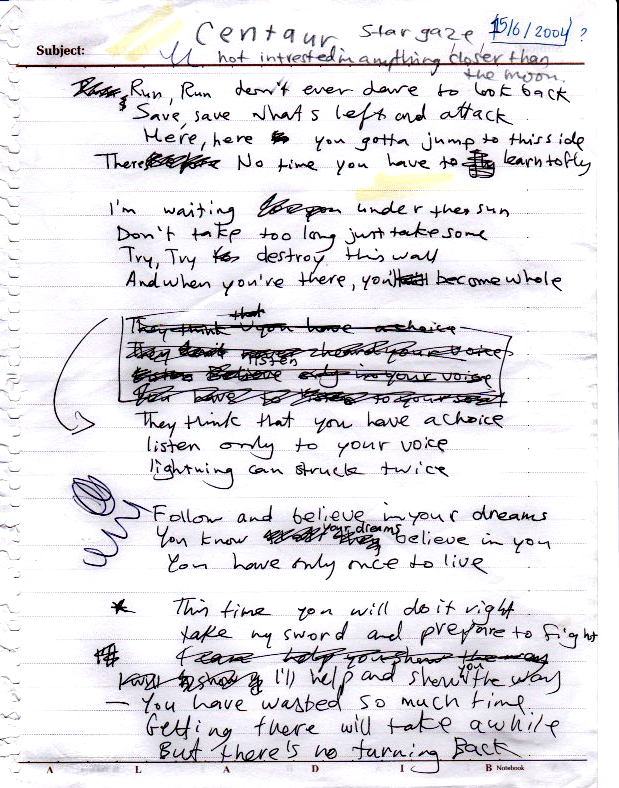 Centaur Stargaze 15/6/2004 ?
Subject:
not intrested in anything closer than
the moon.
Run, Run don't ever dare to look back
& Save, save what's left and attack
Here, here you gotta jump to this side
There No time you have to learn to fly
I'm waiting under the sun
Don't take too long just take some
Try, Try to destroy this wall
And when you're there, you'll become whole
that
They think you have a choice
They never heard your voice
listen
Believe only in your voice
You have to to your soul
They think that you have a choice
listen only to your voice
lightning can struck twice
Follow and believe in your dreams
your dreams
You know believe in you
You have only once to live
* This time you will do it right
take my sword and prepare to fight
I can help you show the way
you
I'll help and show the way
— You have wasted so much time
Getting there will take a while
But there's no turning Back
A L A D I B Notebook